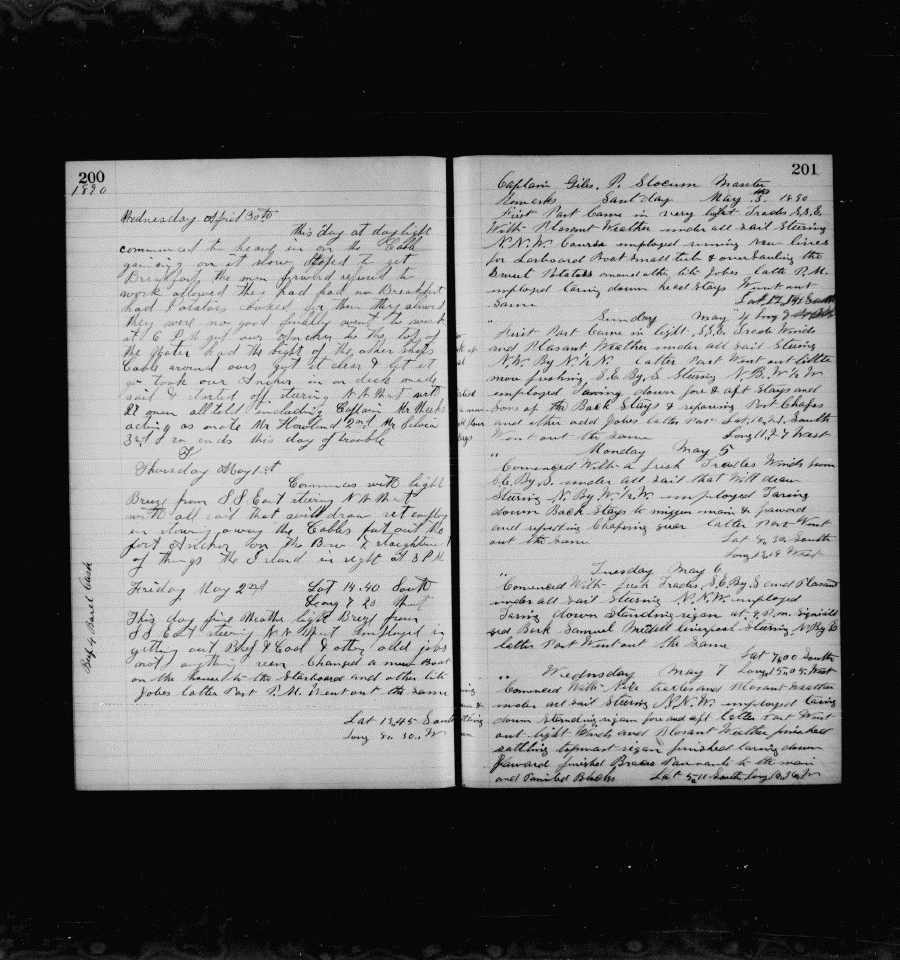 200
1890
Wednesday April 30th
This day at day light
commenced to heave in on the Cable
gaining on it slow stoped to get
Breakfast the men forward refused to
work allowed they had had no Breakfast
had Potatoes cooked for them they allowed
they were no good finally went to work
at 6 P.M got our Anchor to the top of
the Water had the bight of the other Ships
Cable around ours got it clear & let it
go took our Anchor in on deck made
sail & started off steering N.N.West with
27 men all told including Captain Mr Weeks
acting as mate Mr Howland 2nd Mr Silvia
3rd & so ends this day of trouble
Thursday May 1st
Commences with light
Breeze from S S East steering N N West
with all sail that will draw employ
in stowing away the Cables put out the
port Anchor on the Bow & straighten
of things the Island in sight at 3 P M
Friday May 2nd Lat 14.40 South
Long 7 20 West
This day fine Weather light Breeze from
S S East steering N N West employed in
getting out Beef & Coal & other odd jobs
not anything seen Changed a new Boat
on the house to the Starboard and other litle
Jobes latter Part P.M. Went out the same
Lat 13.45 South
Long 8. 30. W
Beef 4 Barel Cask
201
Captain Giles. P. Slocum Master
Remarks Saturday May 3. 1890
First Part Came in very light Trades S.S.E.
With Plesant Weather under all sail Steering
N.N.W. Course employed runing New lines
for Larboard Boat Small tub & overhauling the
Sweet Potatoes and other litle Jobes latter P.M.
employed taring down head Stays Went out
Same Lat 12. 14 South
" Sunday May 4 Long
First Part Came in light S.S.E. Trade Winds
and Plesant Weather under all sail Steering
N.W. By N ½ N. latter Part Went out little
more freshing S.E. By. S Steering N.B.W ½ W
employed Taring down fore & aft Stays and
some of the Back Stays & reparing Port Chafes
and other odd Jobes latter Part Lat. 10. South
Went out the Same Long 11. 27 West
" Monday May 5
Comenced With a fresh Trades Winds from
S.E. By. S. under all sail that Will draw
Steering N.By.W.½.W. employed Taring
down Back Stays to mizzen main & foward
and refasting Chafeing gear latter Part Went
out the Same Lat 8. 30. South
Long 13. 19 West
Tuesday May 6
" Comenced With fresh Trades S.E.By.S and Plesant
under all sail Steering N.N.W. employed
Taring down Standing rigan at 4 P.m. Signald
Bark Samuel Liverpool Steering N By E
latter Part Went out the Same
Lat 7.00 South
" Wednsday May 7 Long 15.05. West
Comenced With Nice trades and Plesant Weather
under all sail Steering N.N.W. employed taring
down Standing rigan fore and aft latter Part Went
out light Winds and Plesant Weather finished
rattling topmast rigan finished taring down
foward finished Braces Pannants to the main
and Painted Blocks Lat 5-11 South Long 16.36 W